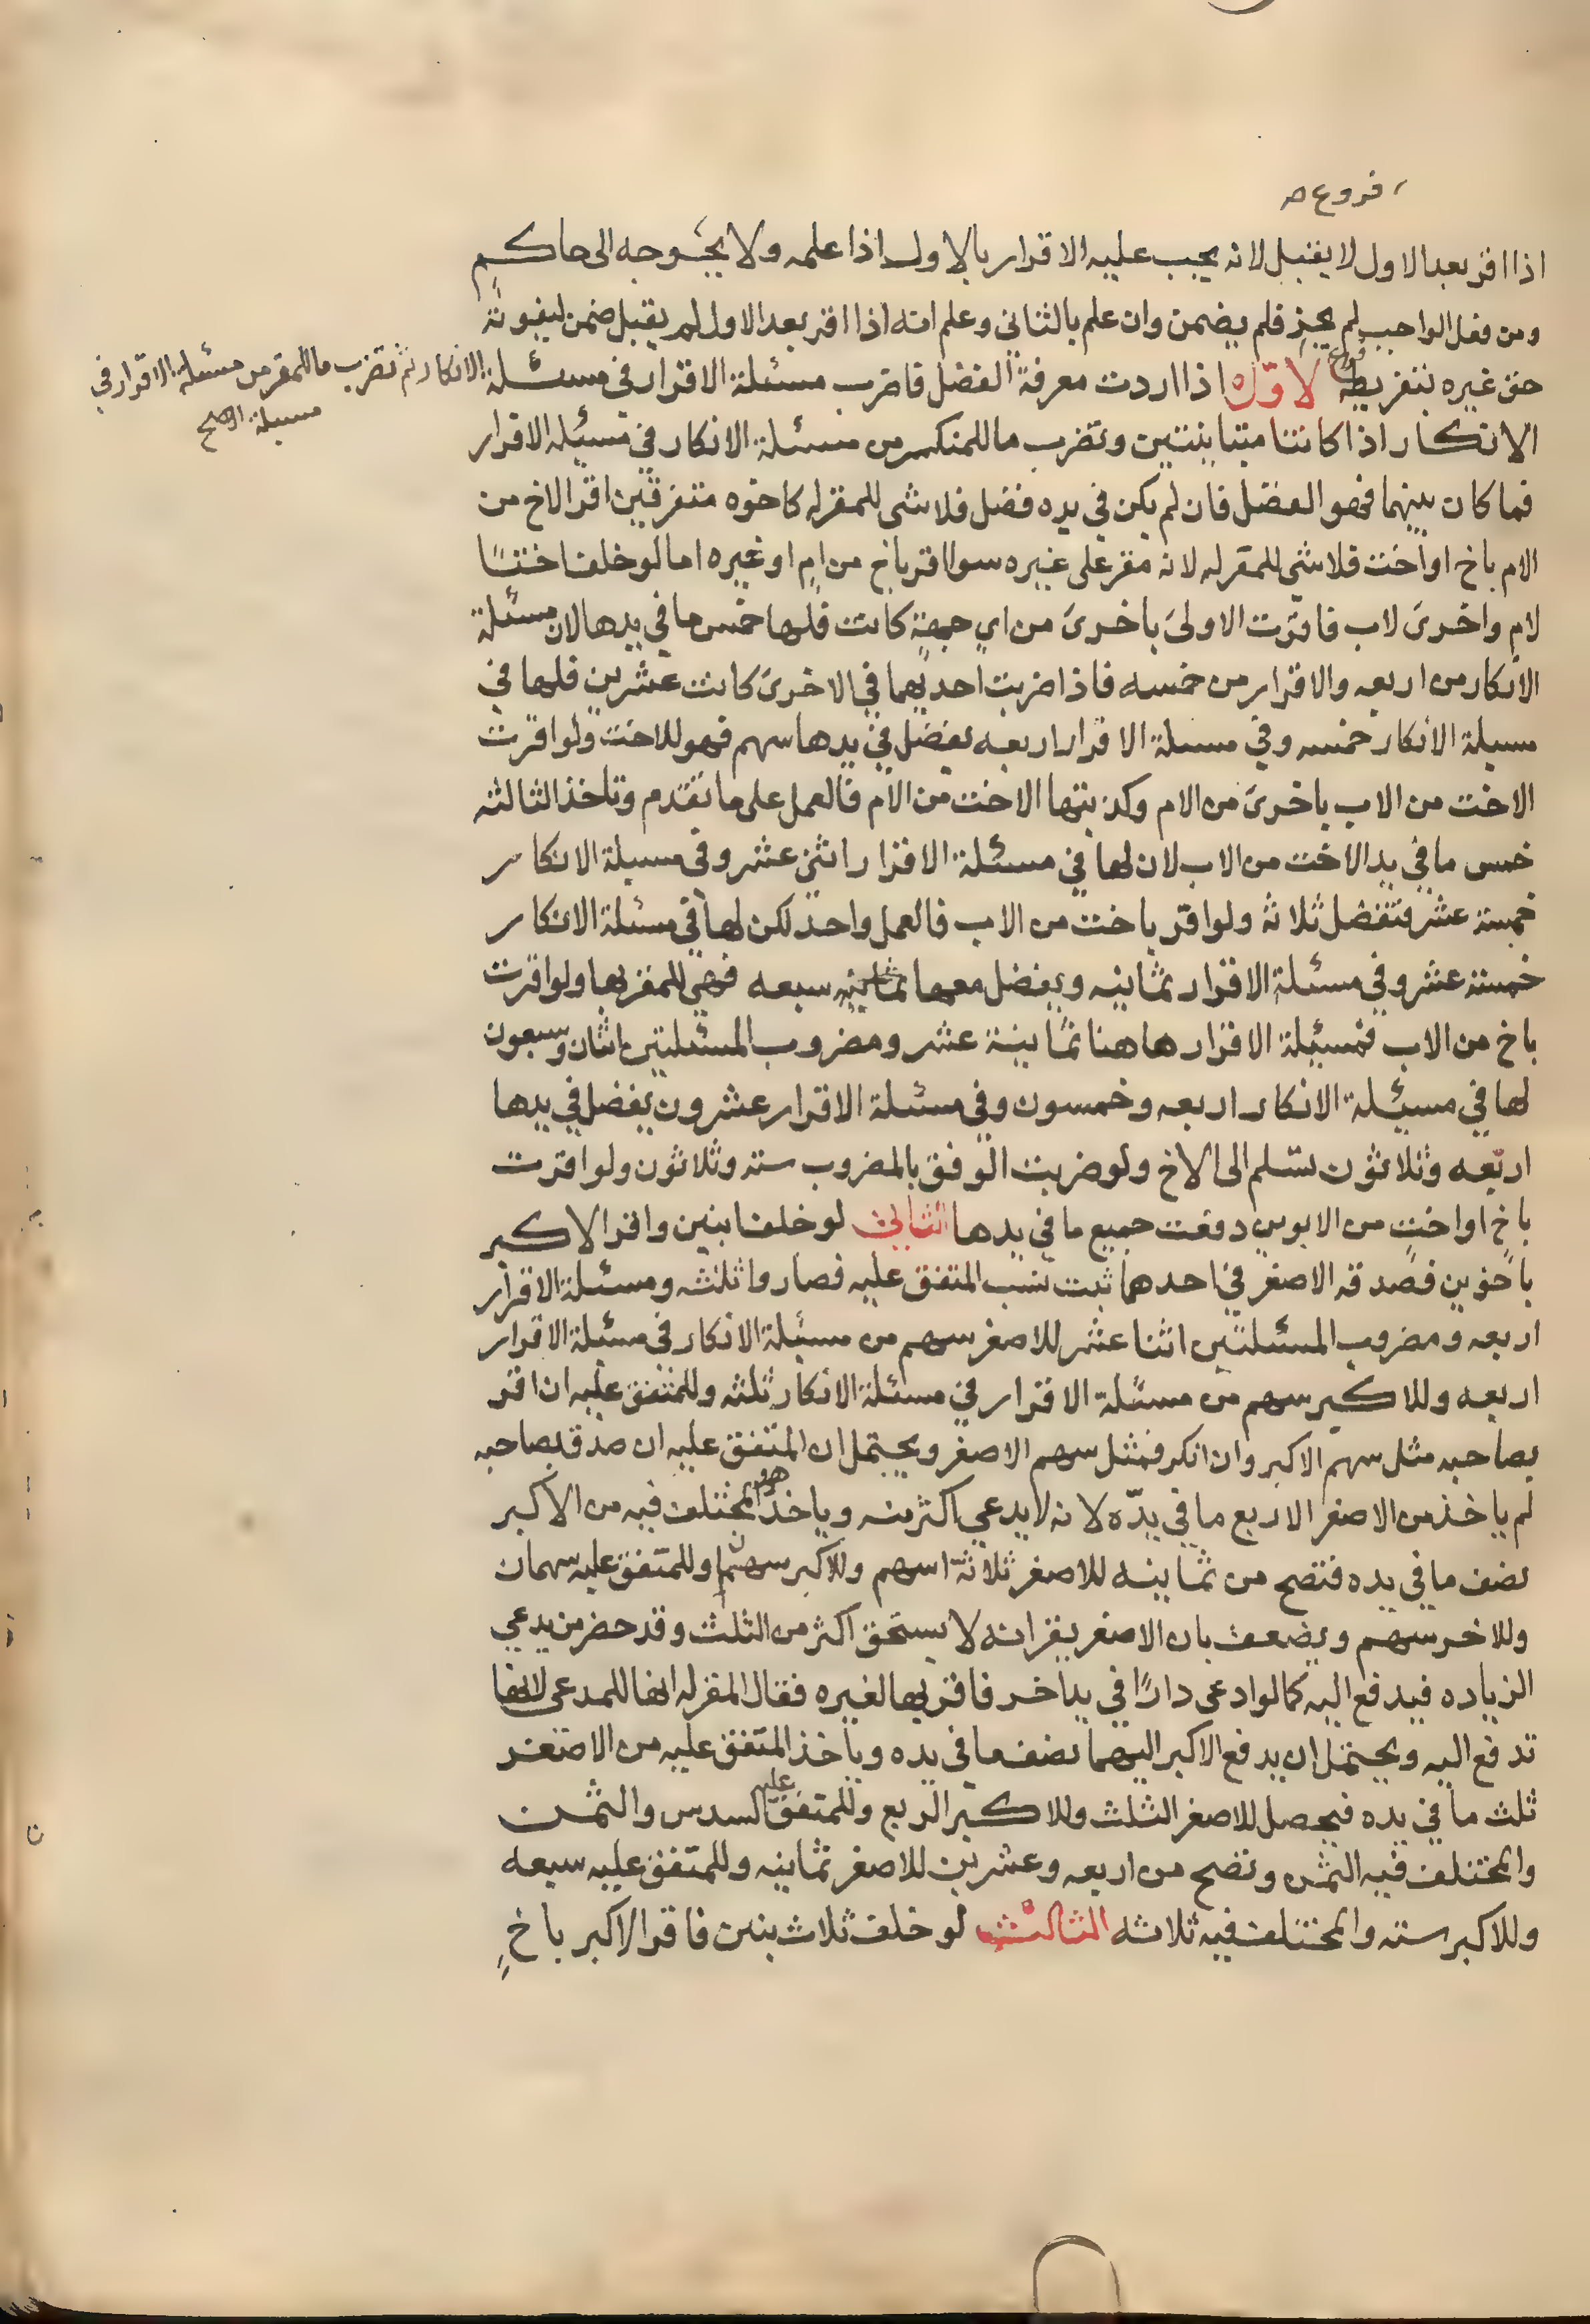 فروع ص
اذا اقر بعد الاول لا يقبل لانه يجب عليه الاقرار بالاول اذا علمه ولا يحوجه الى حاكم
ومن فعل الواجب لم يجز فلم يضمن وان علم بالثانى وعلم انه اذا اقر بعد الاول لم يقبل ضمن لتفويته
حق غيره بتفريطه فروع الاوّل اذا اردت معرفة الفضل فاضرب مسئلة الاقرار فى مسئلة
الانكار ثم تضرب ما للمقر من مسئلة الاقرار فى
مسيلة صح
الانكار اذا كانتا متباينتين وتضرب ما للمنكر من مسئلة الانكار فى مسيئله الاقرار
فما كان بينهما فهو الفضل فان لم يكن في يده فضل فلا شى للمقر له كاخوه متفرقين اقر الاخ من
الام باخ او اخت فلا شي للمقر له لانه مقر على غيره سوا اقر باخ من ام او غيره اما لو خلف اختًا
لام واخرىَ لاب فاقرت الاولىَ باخرىَ من اي جهةٍ كانت فلها خمس ما في يدها لان مسئلة
الانكار من اربعه والاقرار من خمسه فاذا ضربت احديهما في الاخرىَ كانت عشرين فلها في
مسيلة الانكار خمسه وفي مسيلة الاقرار اربعه يفضل في يدها سهم فهو للاخت ولو اقرت
الاخت من الاب باخرىَ من الام وكذبتها الاخت من الام فالعمل على ما تقدم وتاخذ الثالثه
خمس ما في يد الاخت من الاب لان لها في مسئلة الاقرار اثنى عشر وفى مسيلة الانكار
خمسة عشر فتفضل ثلاثة ولو اقر باخت من الاب فالعمل واحد لكن لها في مسئلة الانكار
خمسة عشر وفي مسئلة الاقرار ثمانيه ويفضل معها سبعه فهي للمقر بها ولو اقرت
باخ من الاب فمسيئلة الاقرار هاهنا ثمانية عشر ومضروب المسئلتين اثنان وسبعون
لها في مسيئلة الانكار اربعه وخمسون وفي مسئلة الاقرار عشرون يفضل في يدها
اربعه وثلاثون تسلم الى الاخ ولو ضربت الوفق بالمضروب سته وثلاثون ولو اقرت
باخ او اختٍ من الابوين دفعت جميع ما في يدها الثانى لو خلف ابنين واقر الاكبر
باخوين فصدقه الاصغر في احدهما ثبت نسب المتفق عليه فصاروا ثلثه ومسئلة الاقرار
اربعه ومضروب المسئلتين اثنا عشر للاصغر سهم من مسيئلة الانكار فى مسئلة الاقرار
اربعه وللاكبر سهم من مسئلة الاقرار في مسئلة الانكار ثلثه وللمتفق عليه ان اقر
بصاحبه مثل سهم الاكبر وان انكر فمثل سهم الاصغر ويحتمل ان المتفق عليه ان صدق بصاحبه
لم ياخذ من الاصغر الا ربع ما في يدّه لانه لا يدعي اكثر منه وياخذ هو والمختلف فيه من الاكبر
نصف ما في يده فتصح من ثمانيه للاصغر ثلاثة اسهم وللاكبر سهمان وللمتفق عليه سهمان
وللاخر سهم ويضعف بان الاصغر يقر انه لا يستحق اكثر من الثلث وقد حضر من يدعي
الزياده فيدفع اليه كما لو ادعى دارًا في يد اخر فاقر بها لغيره فقال المقر له انها للمدعى لانها
تدفع اليه ويحتمل ان يدفع الاكبر اليهما نصف ما في يده وياخذ المتفق عليه من الاصغر
ثلث ما في يده فيحصل للاصغر الثلث وللاكبر الربع وللمتفق عليه السدس والثمن
والمختلف فيه الثمن وتصح من اربعه وعشرين للاصغر ثمانيه وللمتفق عليه سبعه
وللاكبر سته والمختلف فيه ثلاثه الثالث لو خلف ثلاث بنين فاقر الاكبر باخٍ